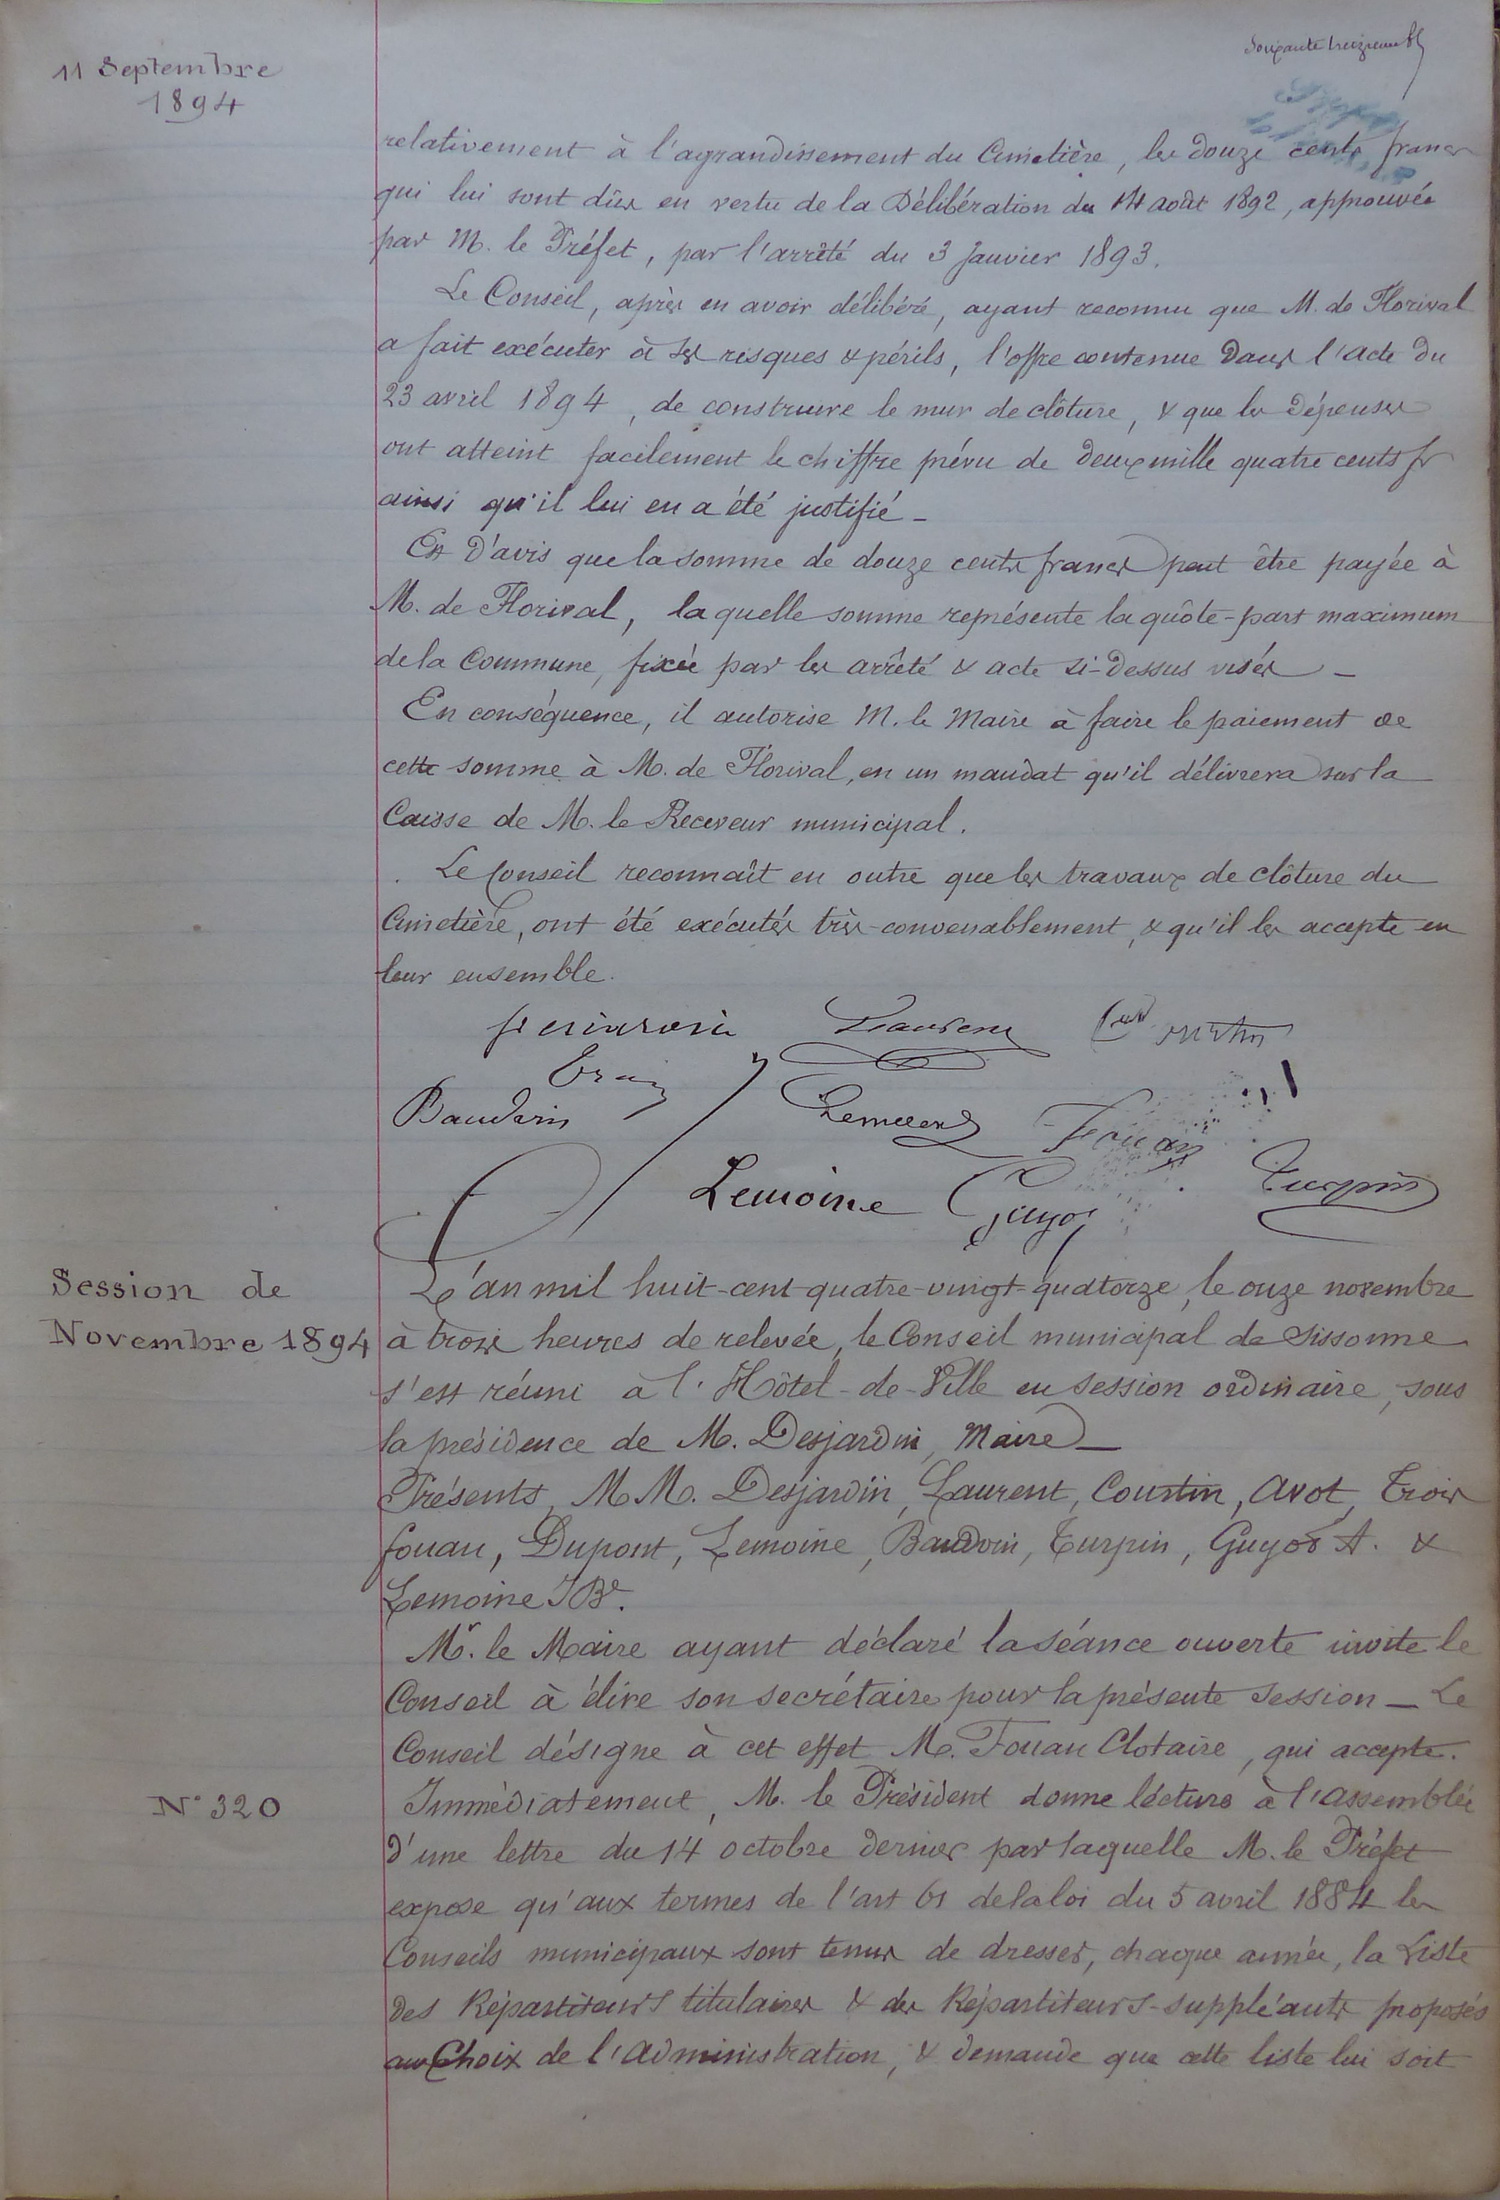 11 Septembre
1894
relativement à l'agrandissement du Cimetière, les douze cents francs
qui lui sont dûs en vertu de la Délibération du 14 août 1892, approuvée
par M. le Préfet, par l'arrêté du 3 Janvier 1893.
Le Conseil, après en avoir délibéré, ayant reconnu que M. de Florival
a fait exécuter à ses risques & périls, l'offre contenue dans l'acte du
23 avril 1894, de construire le mur de clôture, & que les Dépenses
ont atteint facilement le chiffre prévu de deux mille quatre cents fr
ainsi qu'il lui en a été justifié -
Est d'avis que la somme de douze cents francs peut être payée à
M. de Florival, la quelle somme représente la quôte-part maximum
de la Commune, fixée par les arrêté & acte si-dessus visés -
En conséquence, il autorise M. le Maire à faire le paiement de
cette somme à M. de Florival, en un mandat qu'il délivrera sur la
Caisse de M. le Receveur municipal.
Le Conseil reconnaît en outre que les travaux de clôture du
Cimetière, ont été exécutés très-convenablement, & qu'il les accepte en
leur ensemble.
Laurent
Baudoin
Fouan
Lemoine Guyot Turpin
Session de
Novembre 1894
L'an mil huit-cent-quatre-vingt-quatorze, le onze novembre
à trois heures de relevée, le Conseil municipal de Sissonne
s'est réuni à l'Hôtel-de-Ville en session ordinaire, sous
la présidence de M. Desjardin, Maire -
Présents, MM. Desjardin, Laurent, Courtin, Avot, Trois
fouan, Dupont, Lemoine, Baudoin, Turpin, Guyot A. &
Lemoine JBe.
Mr. le Maire ayant déclaré la séance ouverte invite le
Conseil à élire son secrétaire pour la présente session - Le
Conseil désigne à cet effet M. Fouan Clotaire, qui accepte.
N° 320
Immédiatement, M. le Président donne lécture à l'assemblée
d'une lettre du 14 octobre dernier par laquelle M. le Préfet
expose qu'aux termes de l'art 61 de la loi du 5 avril 1884 les
Conseils municipaux sont tenus de dresser, chaque année, la Liste
des Répartiteurs titulaires & des Répartiteurs-suppléants proposés
au Choix de l'administration, & demande que cette liste lui soit